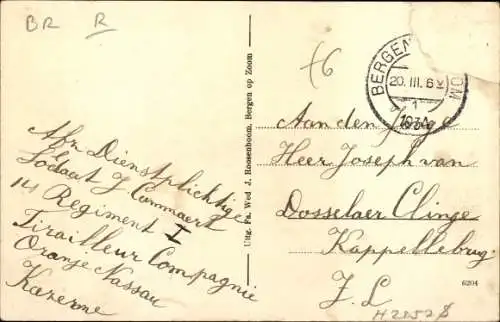 BR R
+6
BERGEN OM
20. III. 6
1
1934
Afz Dienstplichtige
Soldaat J Commaert
14 Regiment I
Tirailleur Compagnie
Oranje Nassau
Kazerne
Uitg. Fa. Wed J. Roosenboom, Bergen op Zoom
Aan den Jonge
Heer Joseph van
Dosselaer Clinge
Kappellebrug
Z. L
6204